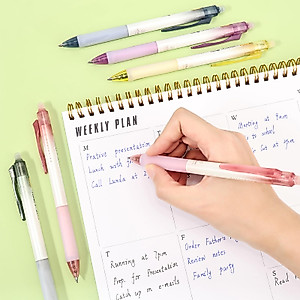 WEEKLY PLAN
M
Pratice presentation
Lunch with
Call Landa at 2pm
W
Meeting at 9am
to school
T
Running at 7pm
Prep. for Presentation
Catch up on e-mails
F
Order Father's
Review notes
Family party
S
Read